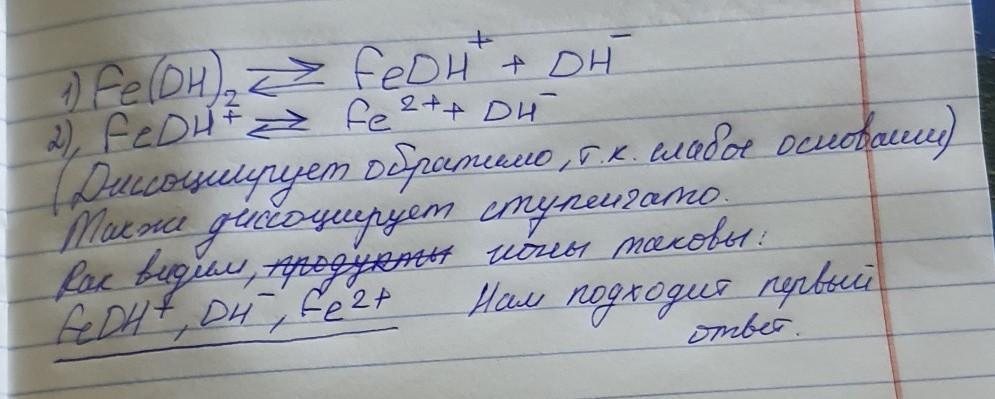 1) Fe(OH)₂ ⇄ FeOH⁺ + OH⁻
2), FeOH⁺ ⇄ Fe²⁺ + OH⁻
(Диссоциирует обратимо, т.к. слабое основание)
Также диссоциирует ступенчато.
Как видим, ~~продукты~~ ионы таковы:
FeOH⁺, OH⁻, Fe²⁺ Нам подходит первый
ответ.